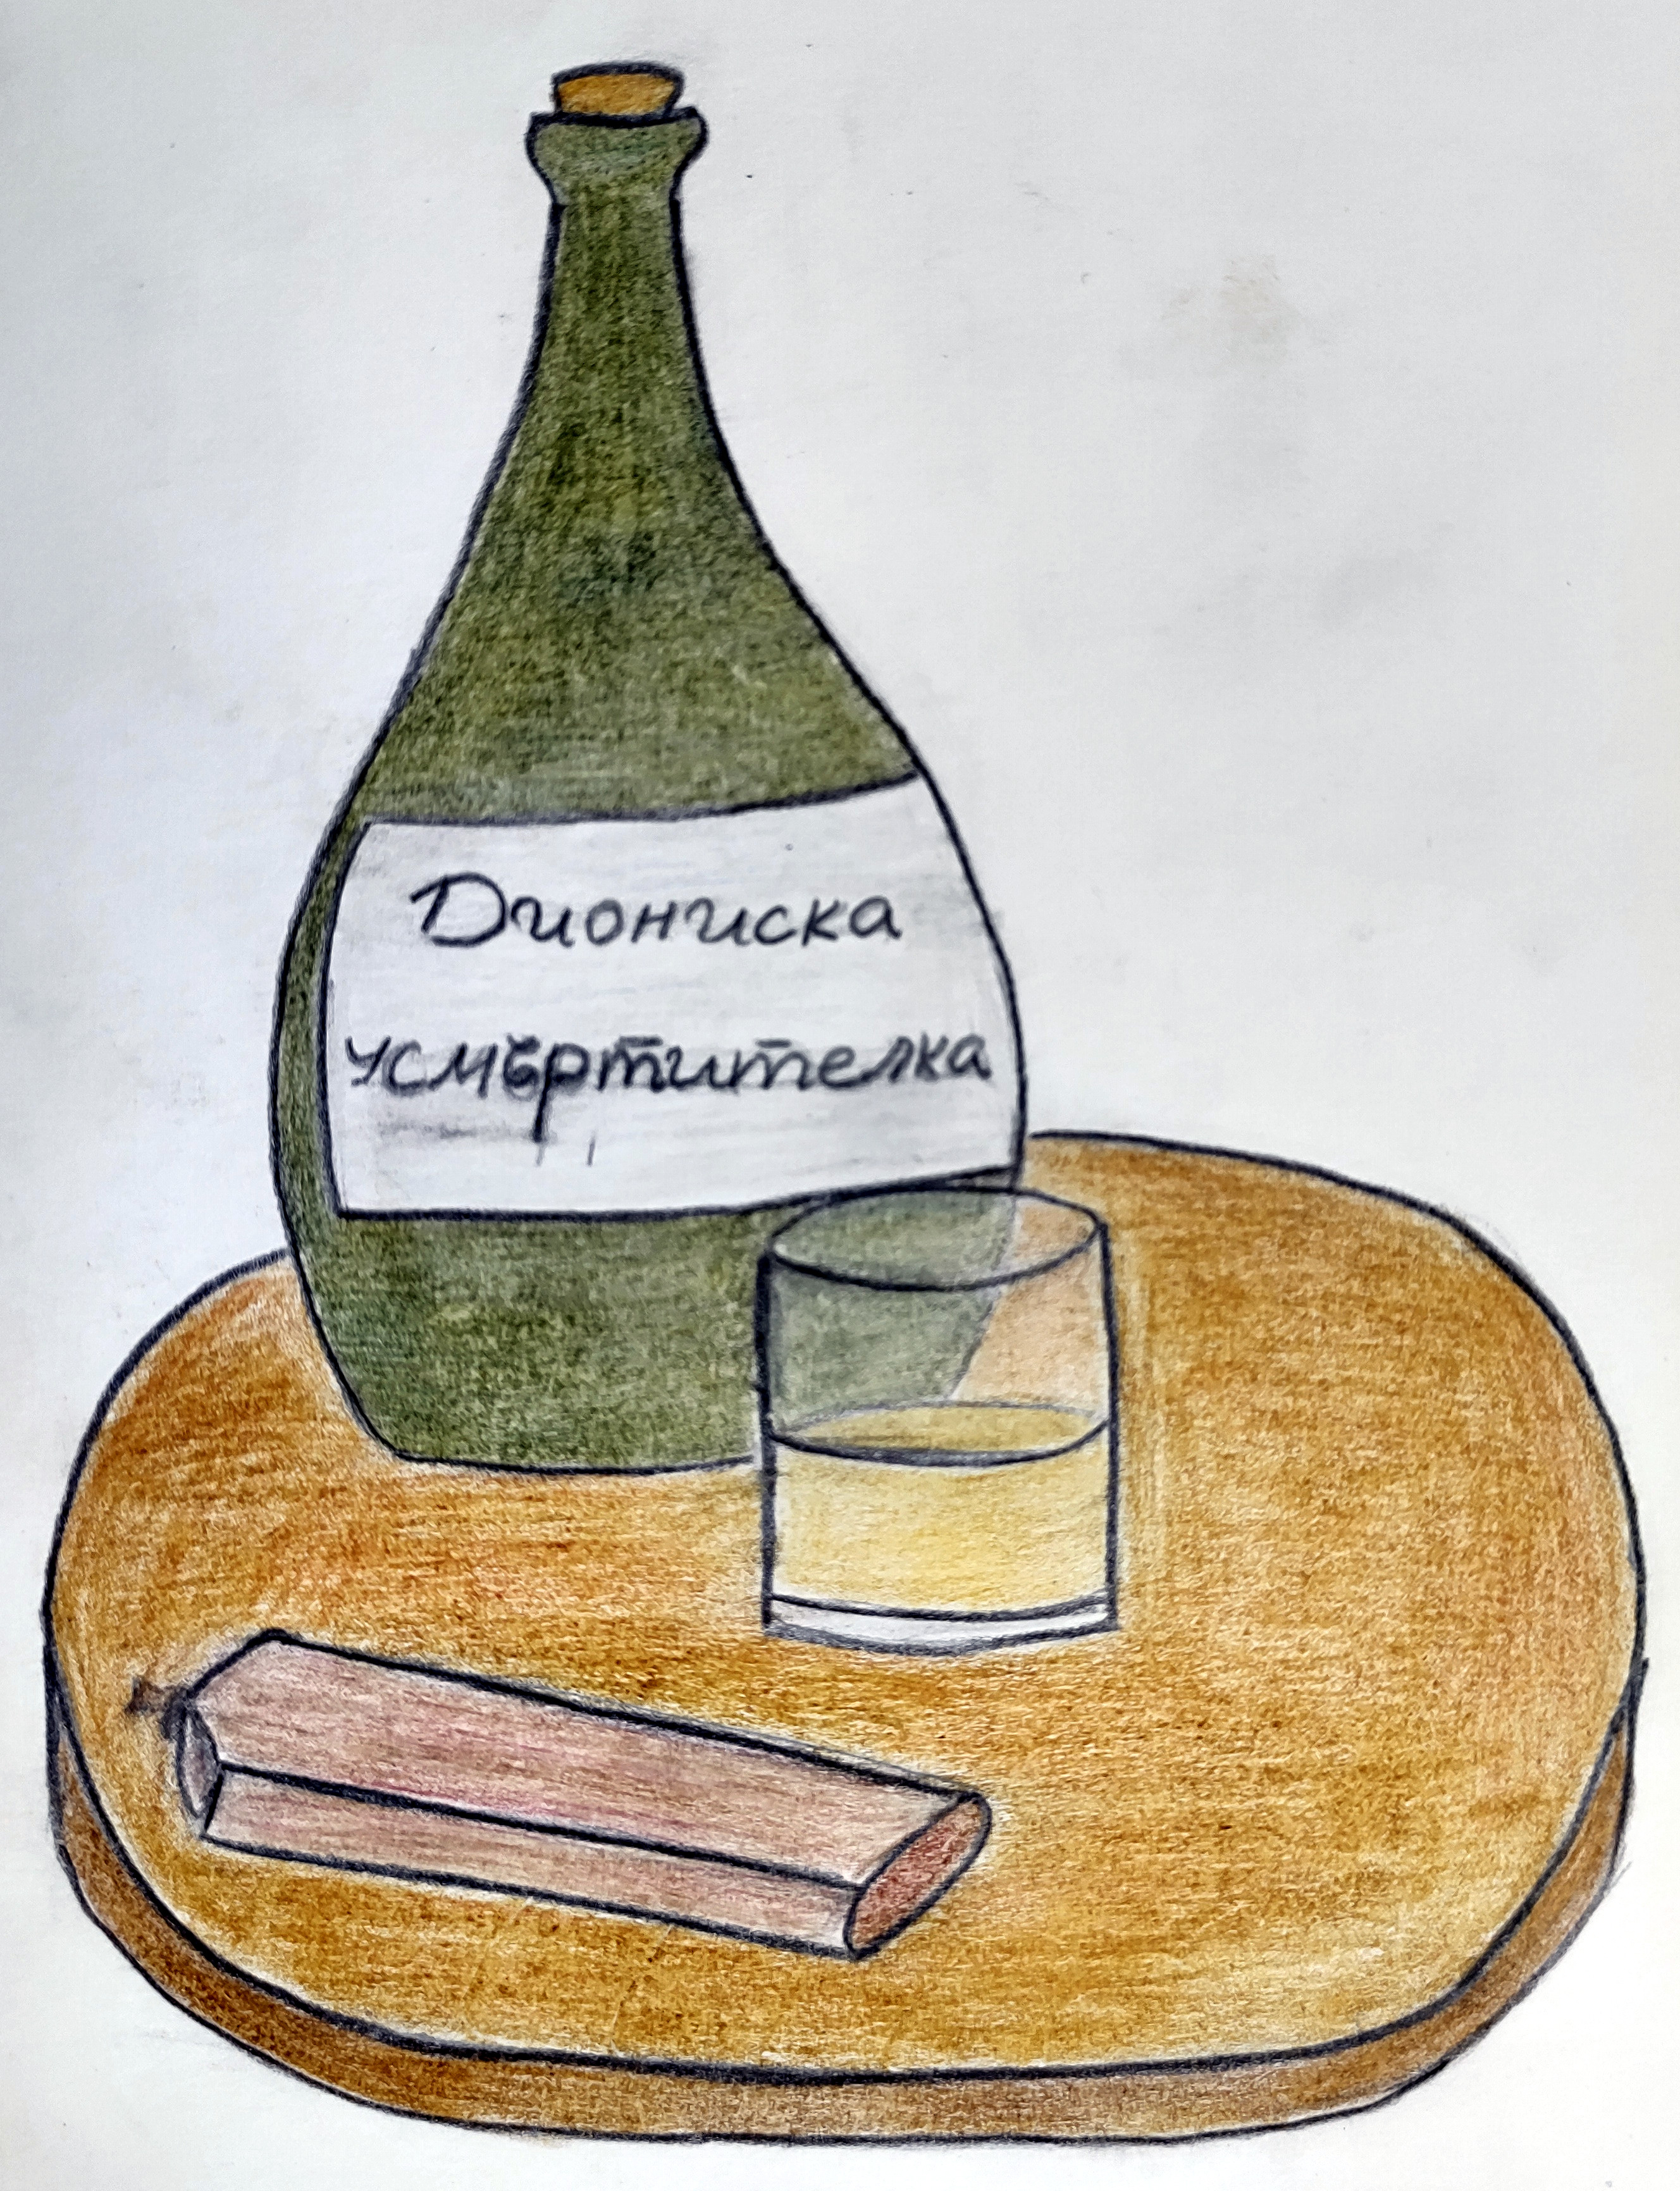 Диониска
усмъртителка